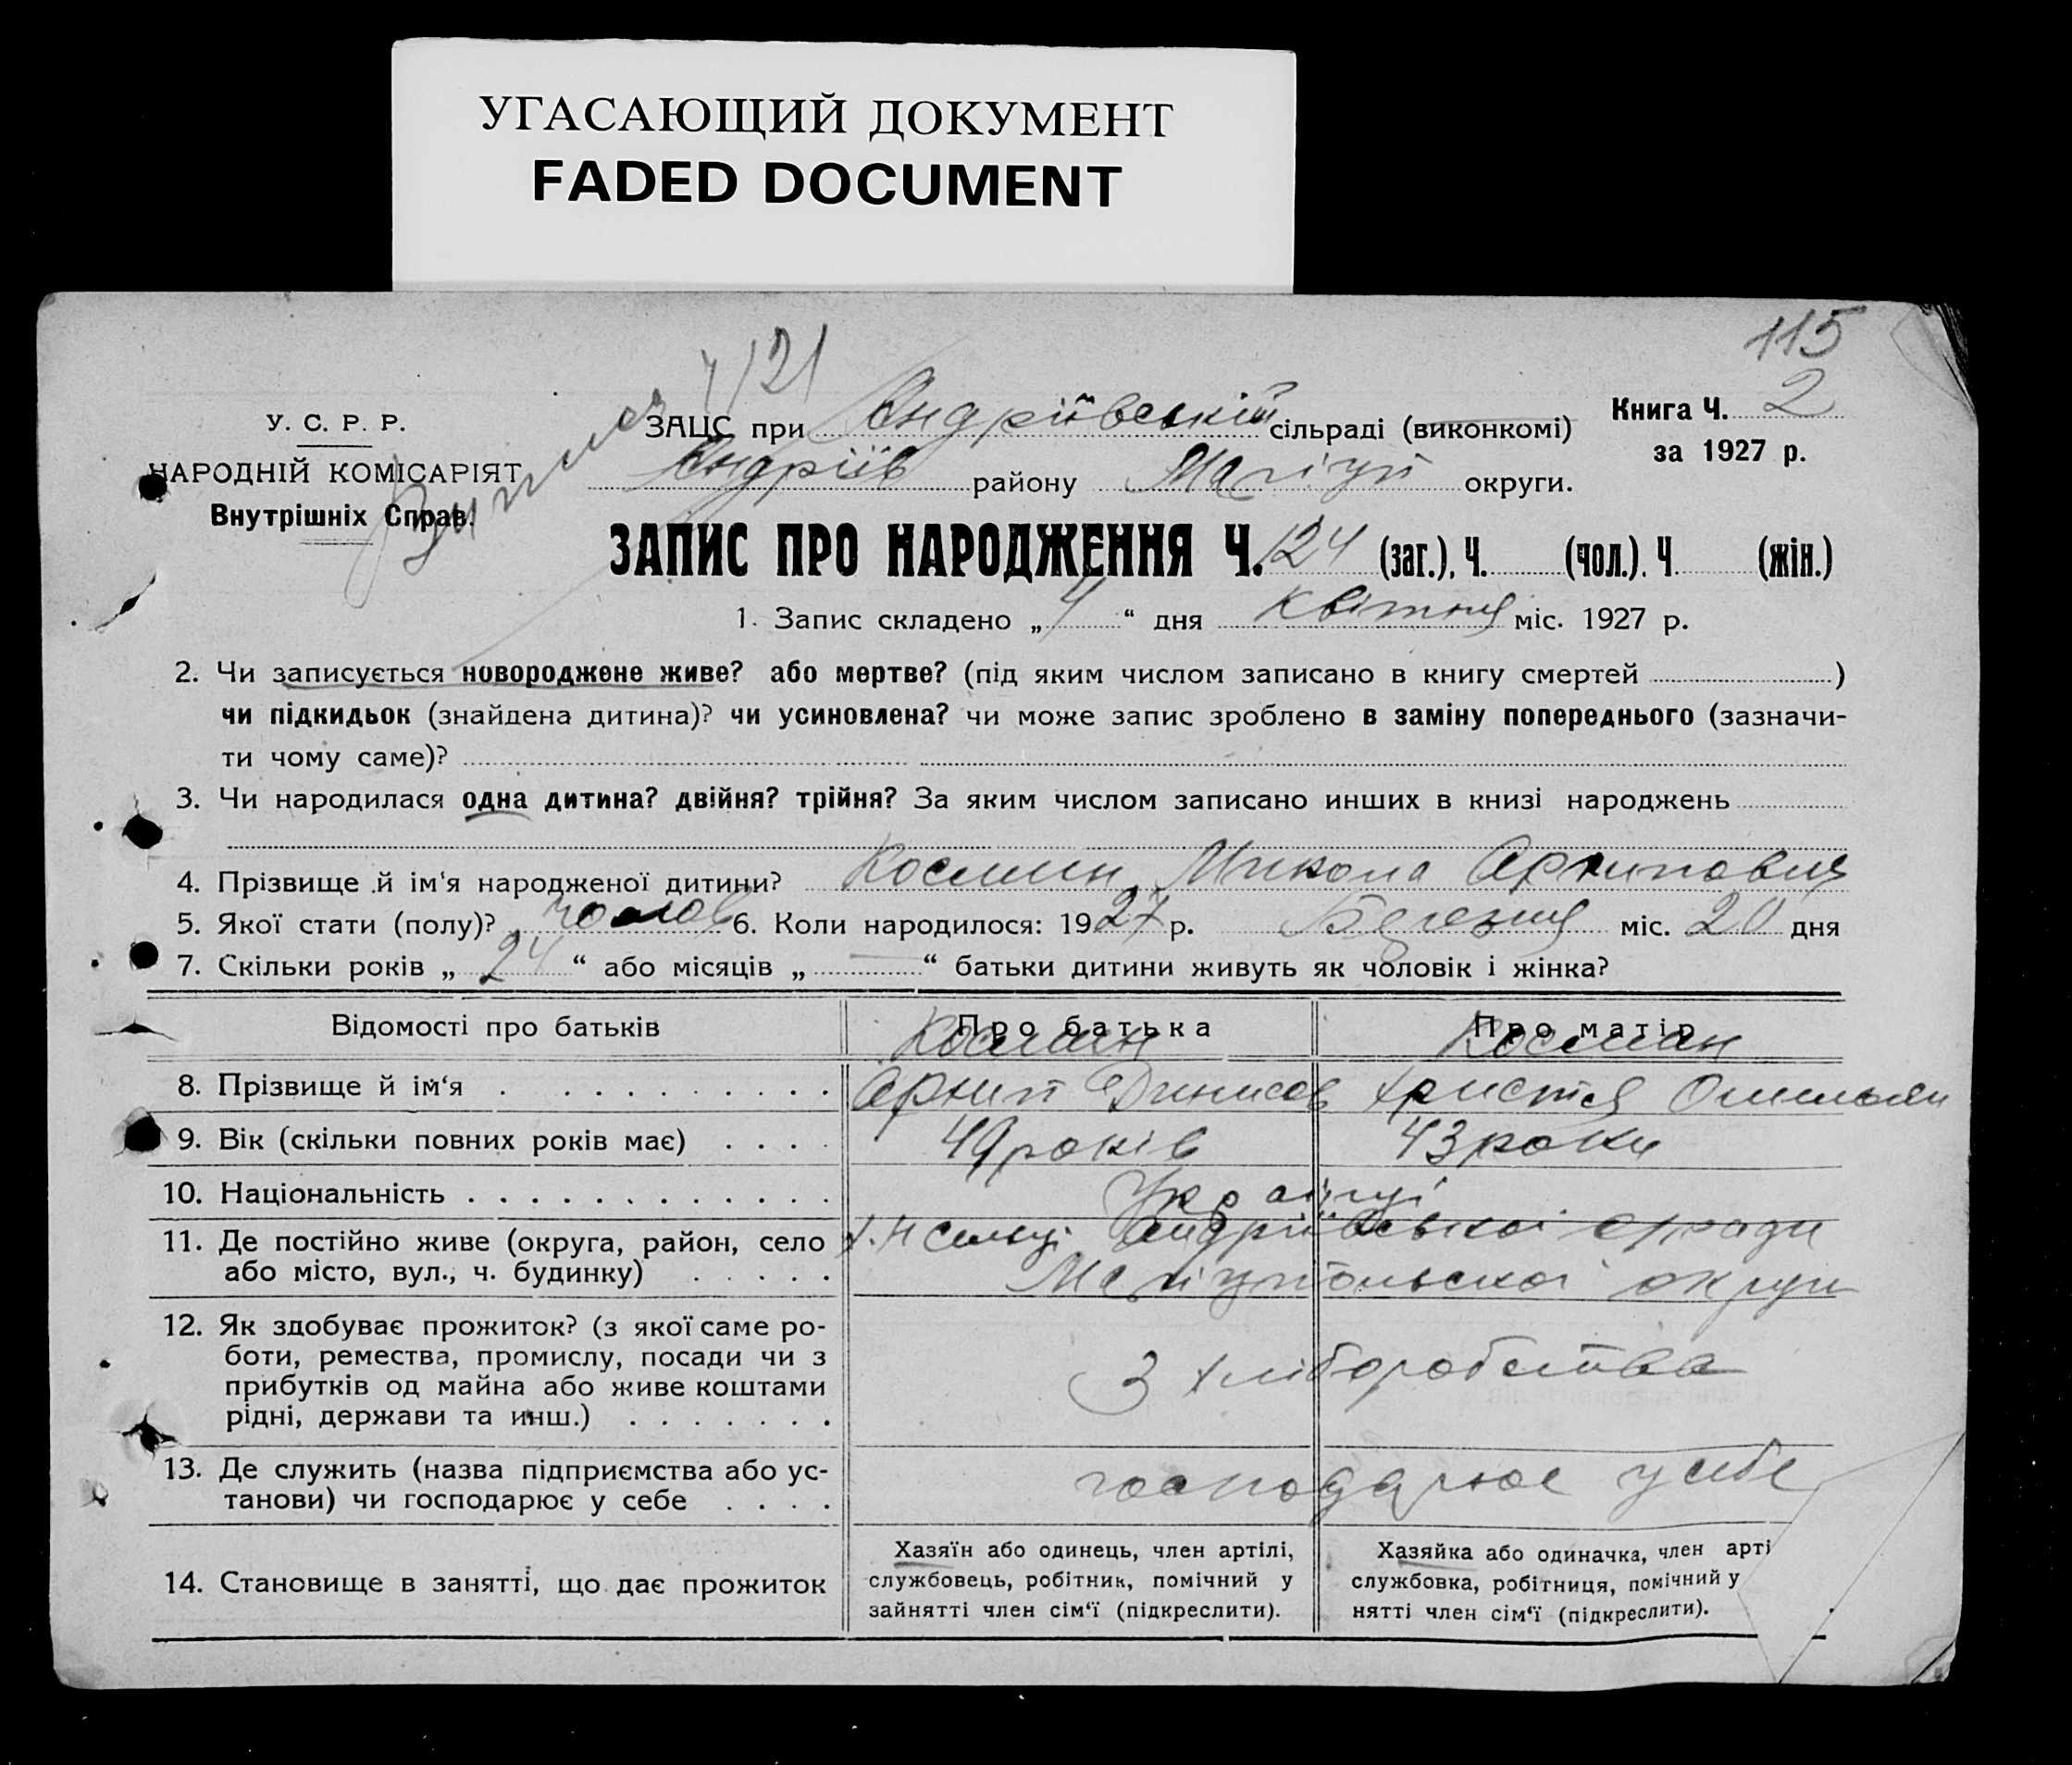 УГАСАЮЩИЙ ДОКУМЕНТ
FADED DOCUMENT
115
У. С. Р. Р.
НАРОДНІЙ КОМІСАРІЯТ
Внутрішніх Справ.
ЗАЦС при Андріївській сільраді (виконкомі)
Книга Ч. 2
за 1927 р.
Андріїв району Маріуп округи.
ЗАПИС ПРО НАРОДЖЕННЯ Ч. 124 (заг.), Ч. (чол.). Ч (жін.)
1. Запис складено „ 4 “ дня Квітня міс. 1927 р.
2. Чи записується новороджене живе? або мертве? (під яким числом записано в книгу смертей )
чи підкидьок (знайдена дитина)? чи усиновлена? чи може запис зроблено в заміну попереднього (зазначи-
ти чому саме)?
3. Чи народилася одна дитина? двійня? трійня? За яким числом записано инших в книзі народжень
4. Прізвище й ім'я народженої дитини? Микола Архипович
5. Якої стати (полу)? чолов 6. Коли народилося: 1927 р. Березня міс. 20 дня
7. Скільки років „ 24 “ або місяців „ — “ батьки дитини живуть як чоловік і жінка?
Відомості про батьків
Про батька
Про матір
Косман
8. Прізвище й ім‘я Архип Динисов Христя Омельян
9. Вік (скільки повних років має) 49 років 43 роки
10. Національність Українці
11. Де постійно живе (округа, район, село Андріївської с/ради
або місто, вул., ч. будинку) Маріупольської округи
12. Як здобуває прожиток? (з якої саме ро-
боти, ремества, промислу, посади чи з
прибутків од майна або живе коштами
рідні, держави та инш.)
З хліборобства
13. Де служить (назва підприємства або ус-
танови) чи господарює у себе
господарює у себе
14. Становище в занятті, що дає прожиток
Хазяїн або одинець, член артілі,
службовець, робітник, помічний у
зайнятті член сім‘ї (підкреслити).
Хазяйка або одиначка, член арті
службовка, робітниця, помічний у
нятті член сім‘ї (підкреслити).